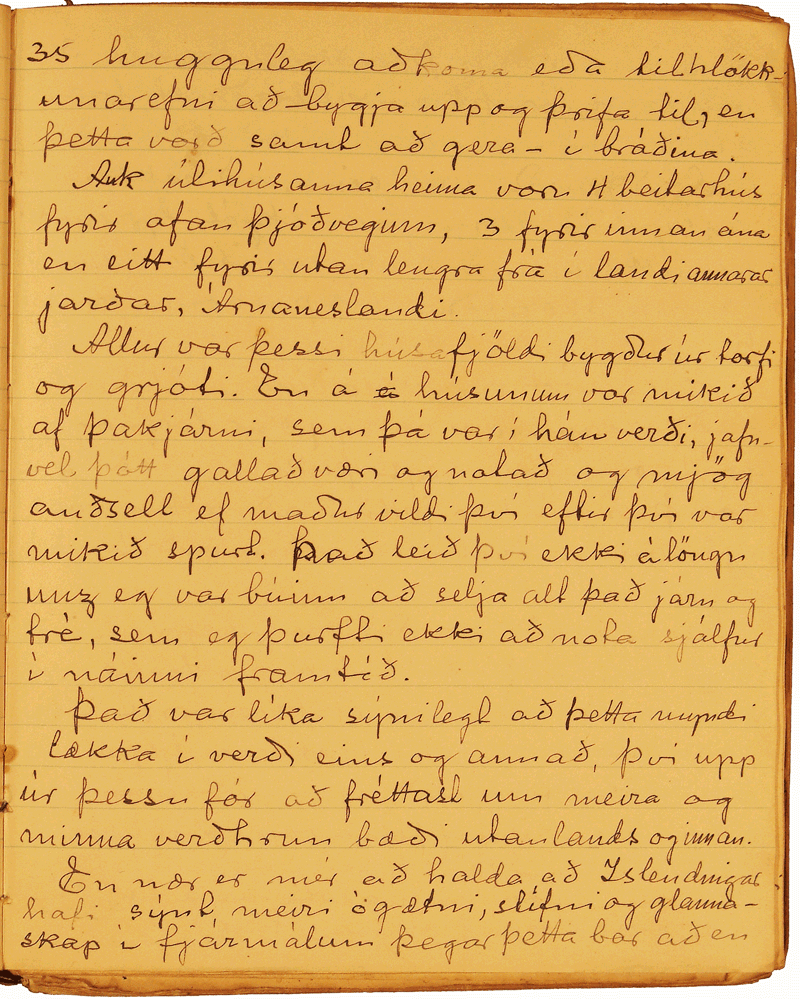 35 hugguleg aðkoma eða tilhlökk-
unarefni að byggja upp og þrifa til, en
þetta varð samt að gera - í bráðina.
Auk útihúsanna heima voru 4 beitarhús
fyrir ofan þjóðveginn, 3 fyrir innan ána
en eitt fyrir utan lengra frá í landi annarar
jarðar, Árnaneslandi.
Allur var þessi húsafjöldi bygður úr torfi
og grjóti. En á húsunum var mikið
af þakjárni, sem þá var í háu verði, jafn-
vel þótt gallað væri og notað og mjög
auðsell ef maður vildi því eftir því var
mikið spurt. Það leið því ekki á löngu
unz eg var búinn að selja alt það járn og
tré, sem eg þurfti ekki að nota sjálfur
í náinni framtíð.
Það var líka sýnilegt að þetta myndi
lækka í verði eins og annað, því upp
úr þessu fór að fréttast um meira og
minna verðhrun bæði utanlands og innan.
En nær er mér að halda að Islendingar
hafi sýnt meiri ógætni, stífni og glanna-
skap í fjármálum þegar þetta bar að en